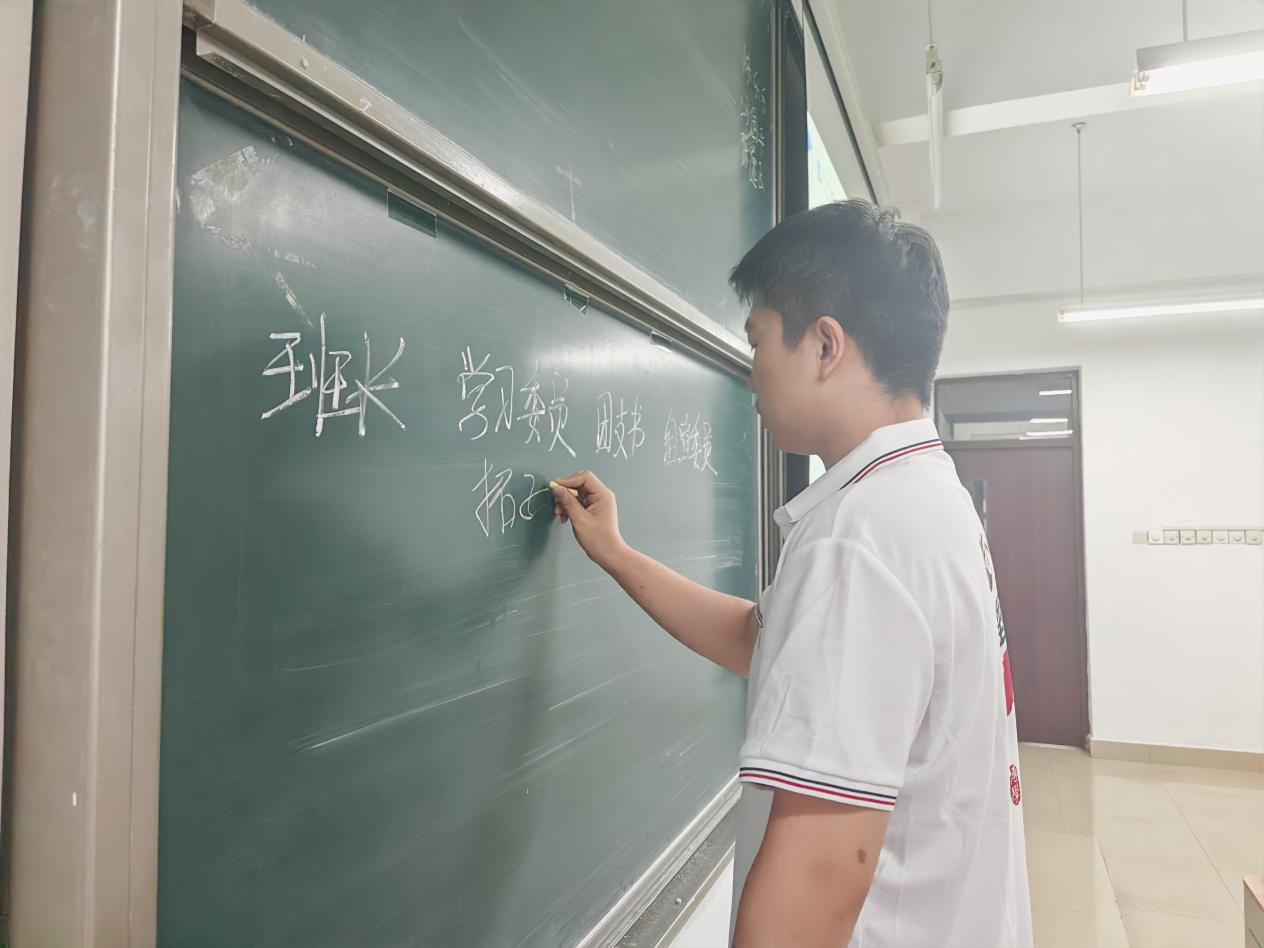 班长 学习委员 团支书 组宣委员
拓